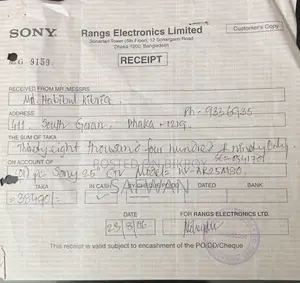 SONY
Rangs Electronics Limited
Sonartori Tower (5th Floor), 12 Sonargaon Road
Dhaka 1000, Bangladesh
Customer's Copy
G 9159
RECEIPT
RECEIVED FROM MR./MESSRS
Mr. Habibul Kibria.
ADDRESS
Ph - 9336935
411 South Goran, Dhaka - 1219.
THE SUM OF TAKA
Thirty eight thousand four hundred & Ninety Only
ON ACCOUNT OF
POSTED ON BIKROY
(01) pc Sony 25" CTV Model: KV-AR25M80.
SAFWAN
TAKA
IN CASH
BY CHEQUE/PO/DD
DATED
BANK
=38490/=
DATE
FOR RANGS ELECTRONICS LTD.
23/8/06
This receipt is valid subject to encashment of the PO/DD/Cheque